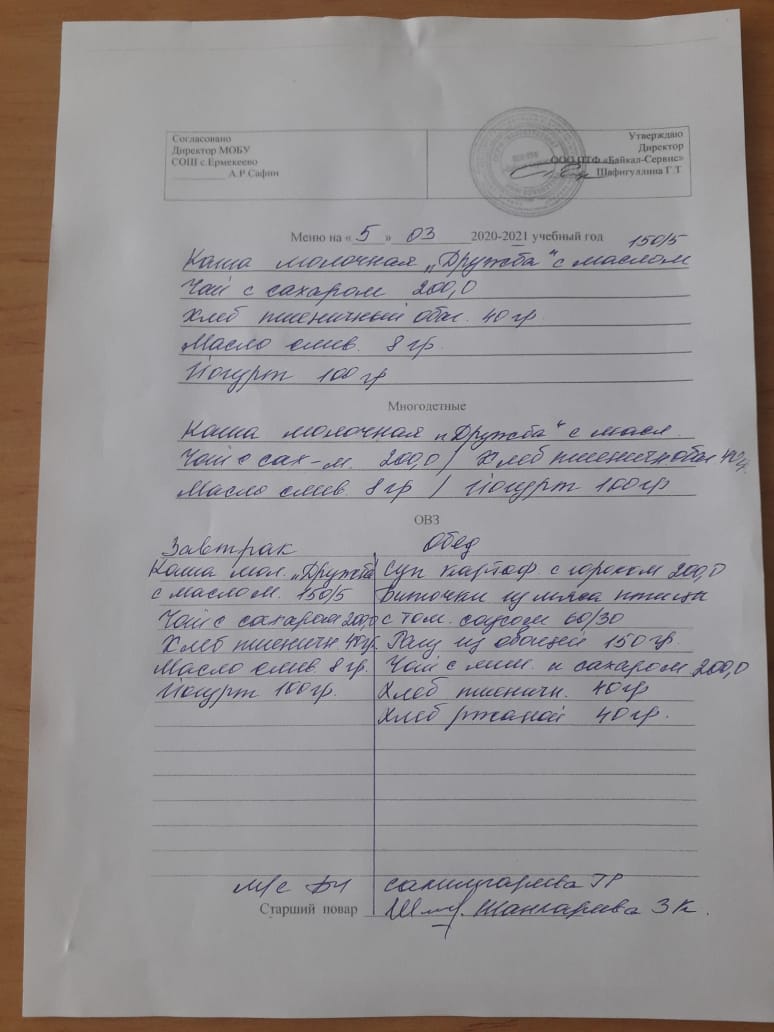 Согласовано
Директор МОБУ
СОШ с.Ермекеево
А.Р.Сафин
Утверждаю
Директор
ООО ПТФ «Байкал-Сервис»
Шафигуллина Г.Т
Меню на « 5 » 03 2020-2021 учебный год 150/5
Каша молочная „Дружба“ с маслом
Чай с сахаром 200,0
Хлеб пшеничный обог. 40 гр.
Масло слив. 8 гр.
Йогурт 100 гр
Многодетные
Каша молочная „Дружба“ с масл.
Чай с сах-м. 200,0 / Хлеб пшеничн. обог 40г.
Масло слив. 8 гр / Йогурт 100 гр
ОВЗ
Завтрак
Каша мол. „Дружба
с маслом. 150/5
Чай с сахаром 200,0
Хлеб пшеничн 40гр.
Масло слив. 8 гр.
Йогурт 100гр.
Обед
Суп картоф. с горохом 200,0
Биточки из мяса птицы
с том. соусом 60/30
Рагу из овощей 150 гр.
Чай с лим. и сахаром 200,0
Хлеб пшеничн. 40гр
Хлеб ржаной 40гр.
М/с
ГР
Старший повар
З К.